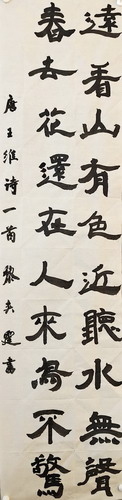 遠看山有色近聽水無聲
春去花還在人來鳥不驚
唐王維詩一首黎夫建書